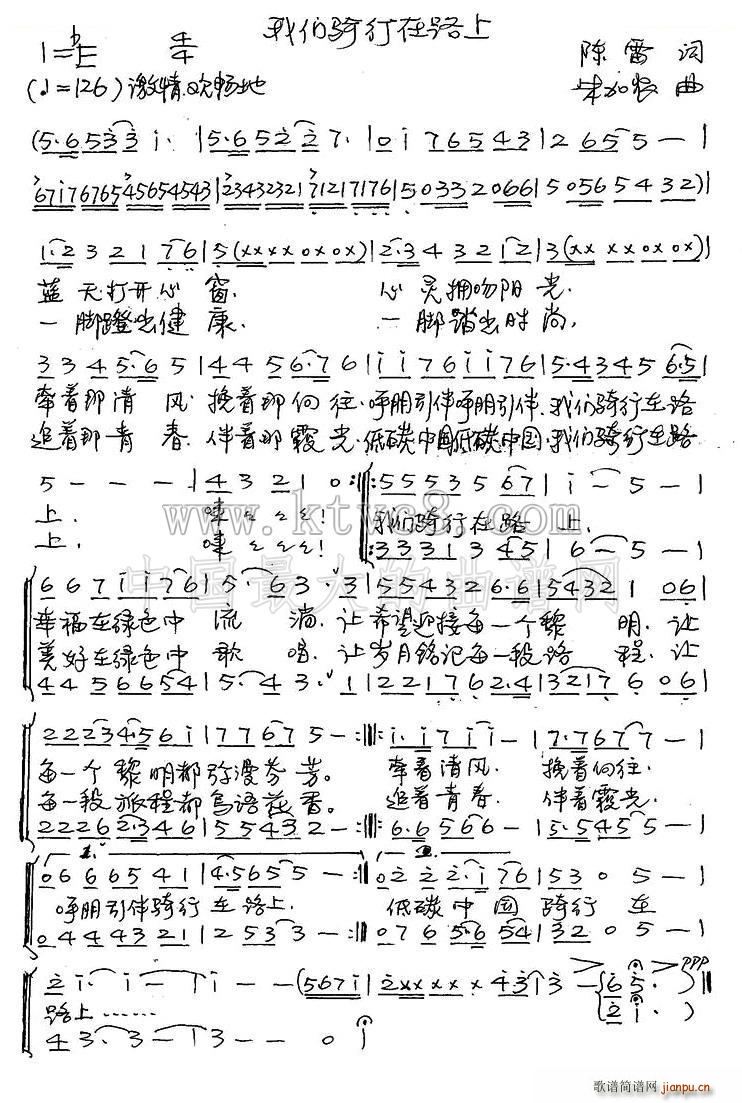 我们骑行在路上
1=♭E 4/4
陈雷 词
(♩=126) 激情.欢畅地
朱加农 曲
(5·6533i·|5·65227·|0i765431|2655—|
67i7676545654543|234323217121 7176|5 0332066|5 0565432)|
1·2321 76|5(xxxx0x0x)|2·34321 2|3(xx xx0x0x)|
蓝天打开心窗. 心灵拥吻阳光.
一脚蹬出健康. 一脚踏出时尚,
3345·65|4456·76|ii76ii76|5·43456·5|
牵着那清风.挽着那向往.呼朋引伴呼朋引伴.我们骑行在路
追着那青春.伴着那霞光.低碳中国低碳中国.我们骑行在路
5———|43210:‖:5553567|i—5—|
上. 噢ミミミ! 我们骑行在路上.
上. 噢ミミミ!
3331345|6—5—|
667ii76|5·63·3|554326·6|5432106|
幸福在绿色中流淌.让希望迎接每一个黎明.让
美好在绿色中歌唱.让岁月铭记每一段路程.让
4456654|5·43·1|221762·4|3217606|
22234·56i|77675—:‖:i·i7ii—|7·7677—|
每一个黎明都弥漫芬芳。 牵着清风. 挽着向往.
每一段旅程都鸟语花香。 追着青春. 伴着霞光.
22262·346|55432—:‖:6·6566—|5·5455—|
0666541|4·5655—:‖0222·i76|5305—|
呼朋引伴骑行在路上. 低碳中国骑行在
0444321|2533—:‖0765·654|3205—|
2i·i—|i——(567i|2xxxxx43|3—i5·)‖
ppp
路上……
43·3—|3——0| i 2i·)
www.ktvc8.com
中国最大的曲谱网
歌谱简谱网
jianpu.cn